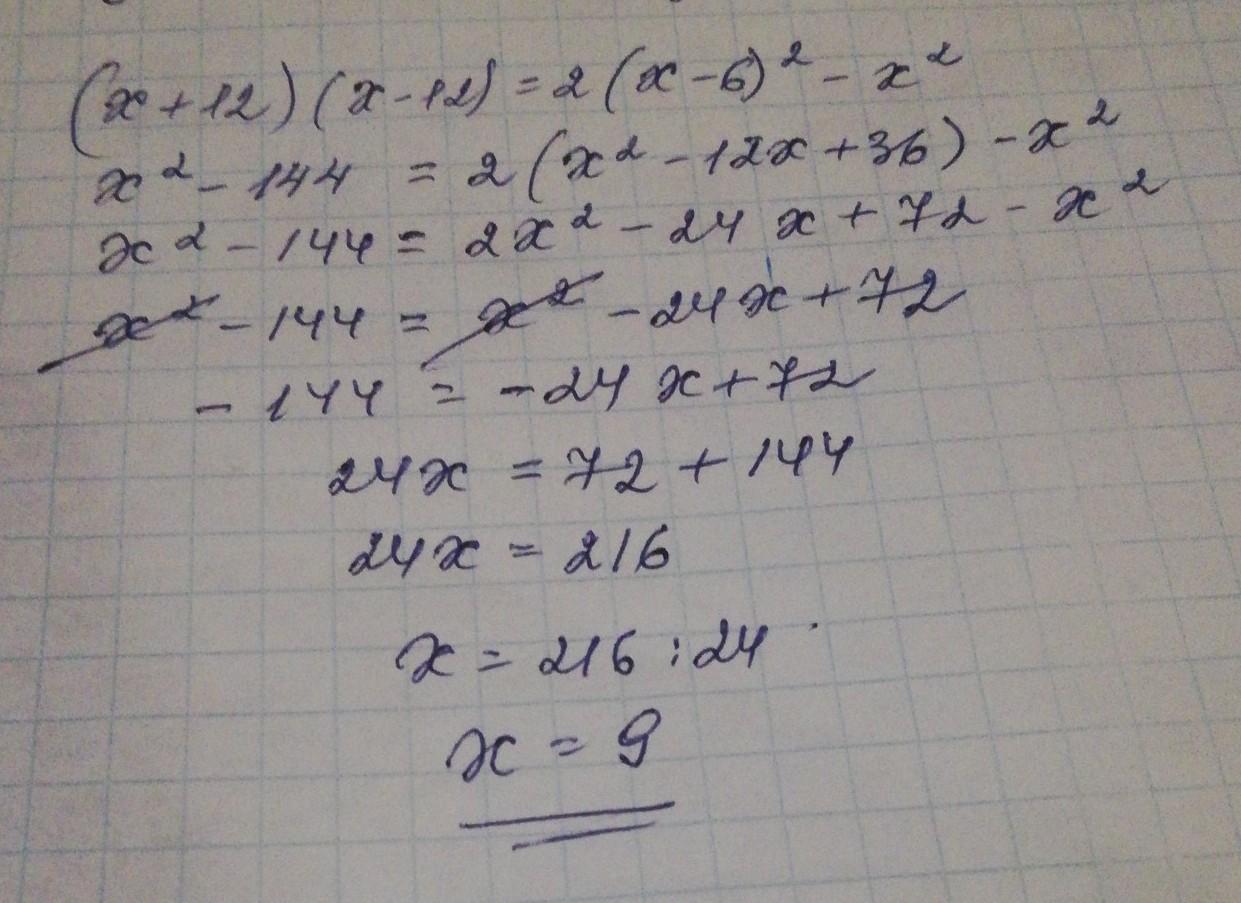 (x+12)(x-12)=2(x-6)²-x²
x²-144=2(x²-12x+36)-x²
x²-144=2x²-24x+72-x²
x²-144=x²-24x+72
-144=-24x+72
24x=72+144
24x=216
x=216:24
x=9